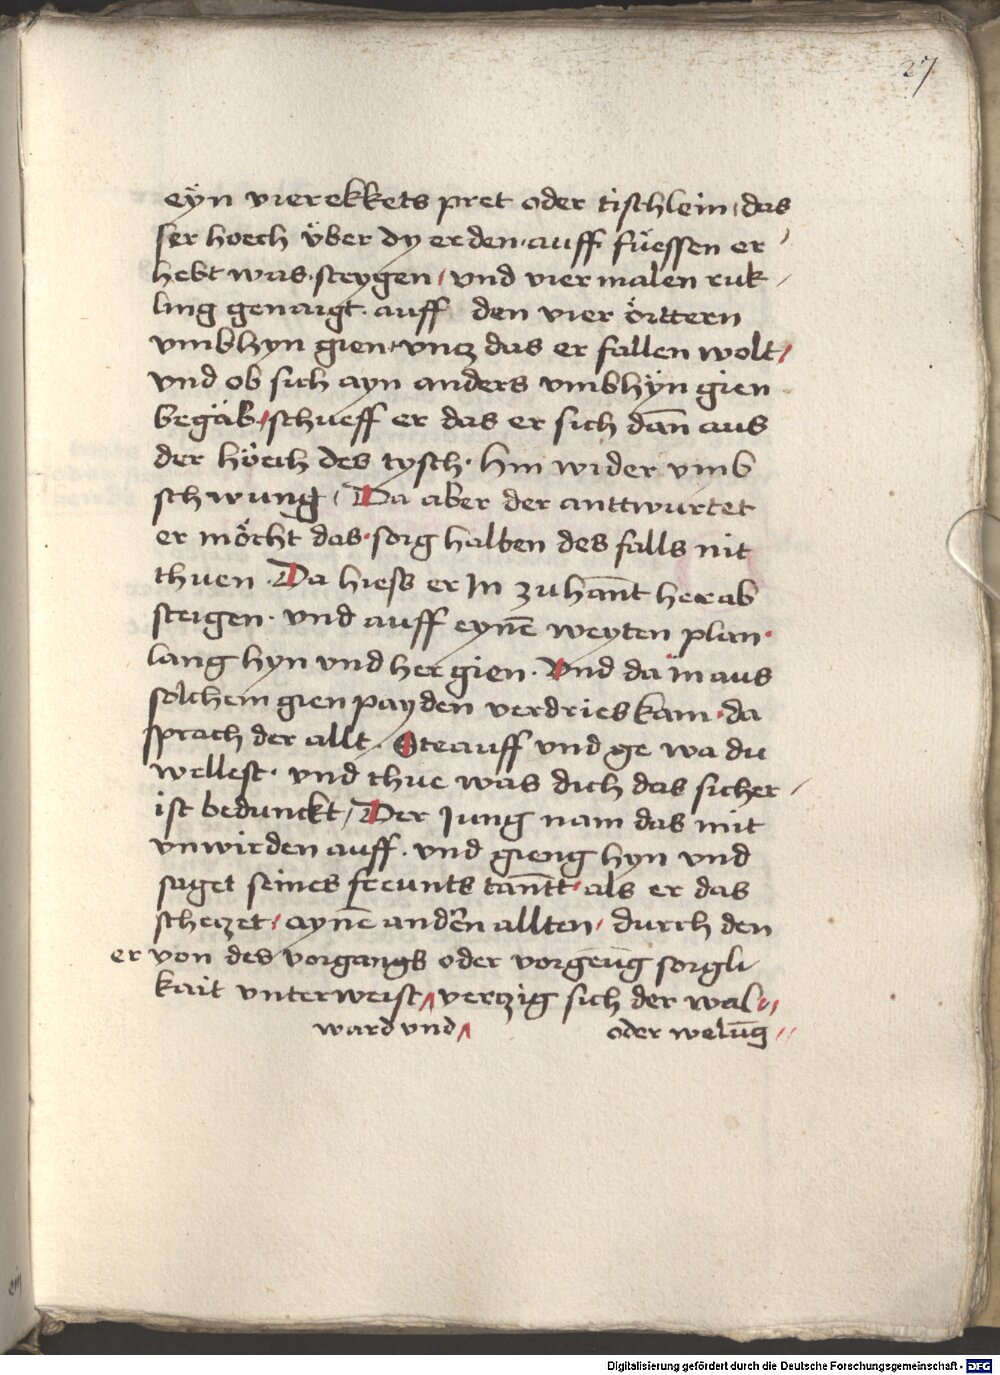 27
eÿn vierekkets pret oder tischlein, das
ser hoech vͤber dy erden · auff fuͤessen er
hebt was · steygen / vnd vier malen ruk
ling genaigt · auff den vier oͤrttern
vmbhyn gien · vntz das er fallen wolt /
vnd ob sich ayn anders vmbhÿn gien
begaͤb / schueff er das er sich dan̄ aus
der hoͤeih des tysch · hin wider vmb
schwung / Da aber der anttwurtet
er moͤcht das · sorg halben des falls nit
thuen · Da hiess er In zuhan̄t herab
steigen · vnd auff eynē weyten plan ·
lang hyn vnd her gien · Vnd da in aus
solchem gien payden verdries kam · da
sprach der allt · Steauff vnd ge wa du
wellest · vnd thue was dich das sicher
ist bedunckt / Der Jung nam das mit
vnwirden auff · vnd gieng hyn vnd
saget seines freunts tan̄tt · als er das
schetzet / aynē anderñ allten / durch den
er von des vorgangs oder vorgeūg sorgli
kait vnterweist / vertzig sich der wal //
ward vnd / oder welūg //
Digitalisierung gefördert durch die Deutsche Forschungsgemeinschaft - DFG